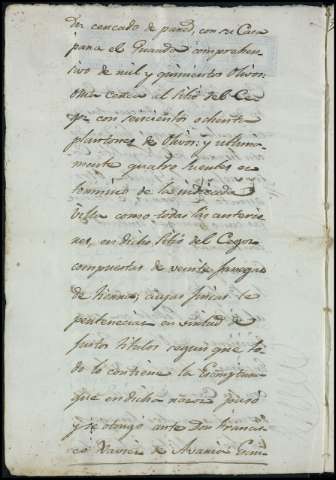 der cercado de pared, con su Casa
para el Guarda comprehen
tivo de mil y quinientos Olivos:
otra cerca al sitio del Co
gor con seiscientos ochenta
plantones de Olivos: y ultima
mente quatro suertes en
termino de la indicada
Villa como todas las anterio
res, en dicho sitio del Cogor
compuestas de veinte fanegas
de tierra; cuyas fincas le
pertenecian en virtud de
justos titulos segun que to
do lo contiene la Escriptura
que en dicha razon pasó
y se otorgo ante Don Francis
co Xavier de